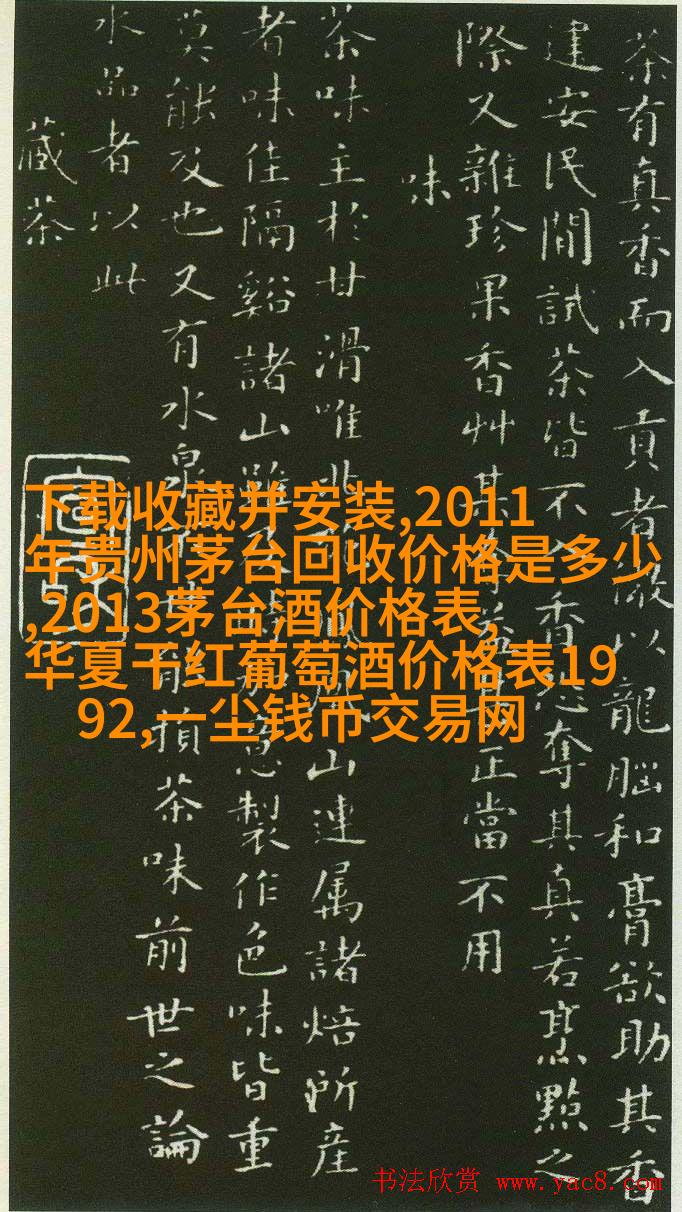 茶有真香而入貢者微以龍腦和膏欲助其香
建安民間試茶皆不香恐奪其真若烹點之
際又雜珍果香艸其益正當不用
味
茶味主於甘滑唯北山連属諸焙所産
者味佳隔谿諸山雖意製作色味皆重
莫能及也又有水泉能損茶味前世之論
水品者以此
藏茶
下载收藏并安装,2011
年贵州茅台回收价格是多少
,2013茅台酒价格表,
华夏干红葡萄酒价格表19
92,一尘钱币交易网
书法欣赏 www.yac8.com